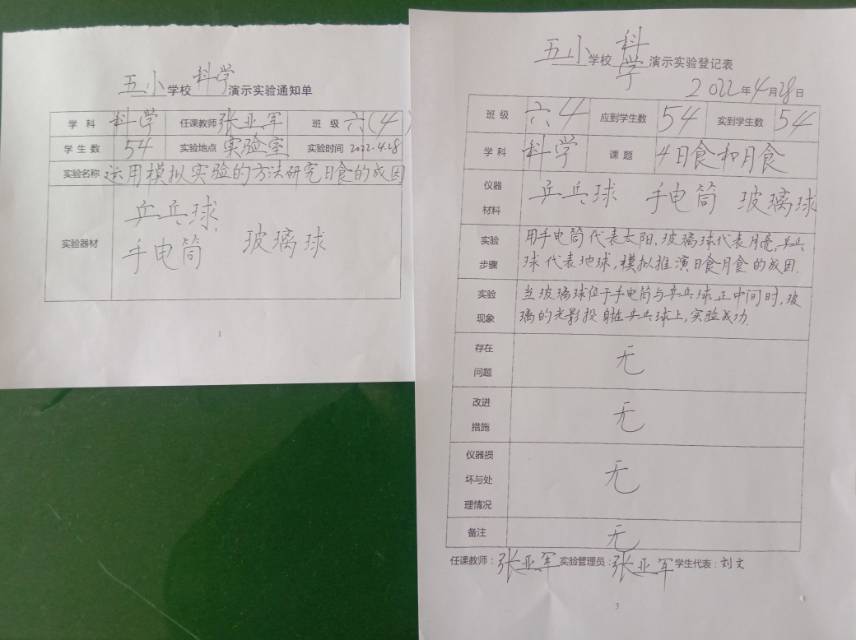 五小学校科学演示实验通知单
学科 科学 任课教师 张亚军 班级 六(4)
学生数 54 实验地点 实验室 实验时间 2022.4.28
实验名称 运用模拟实验的方法研究日食的成因
实验器材
乒乓球
手电筒 玻璃球
1
五小学校科学演示实验登记表
2022年4月28日
班级 六4 应到学生数 54 实到学生数 54
学科 科学 课题 4日食和月食
仪器材料 乒乓球 手电筒 玻璃球
实验步骤
用手电筒代表太阳,玻璃球代表月亮,乒乓
球代表地球,模拟推演日食月食的成因.
实验现象
当玻璃球位于手电筒与乒乓球正中间时,玻
璃的光影投射在乒乓球上,实验成功.
存在问题 无
改进措施 无
仪器损坏与处理情况 无
备注 无
任课教师:张亚军 实验管理员:张亚军 学生代表:刘文